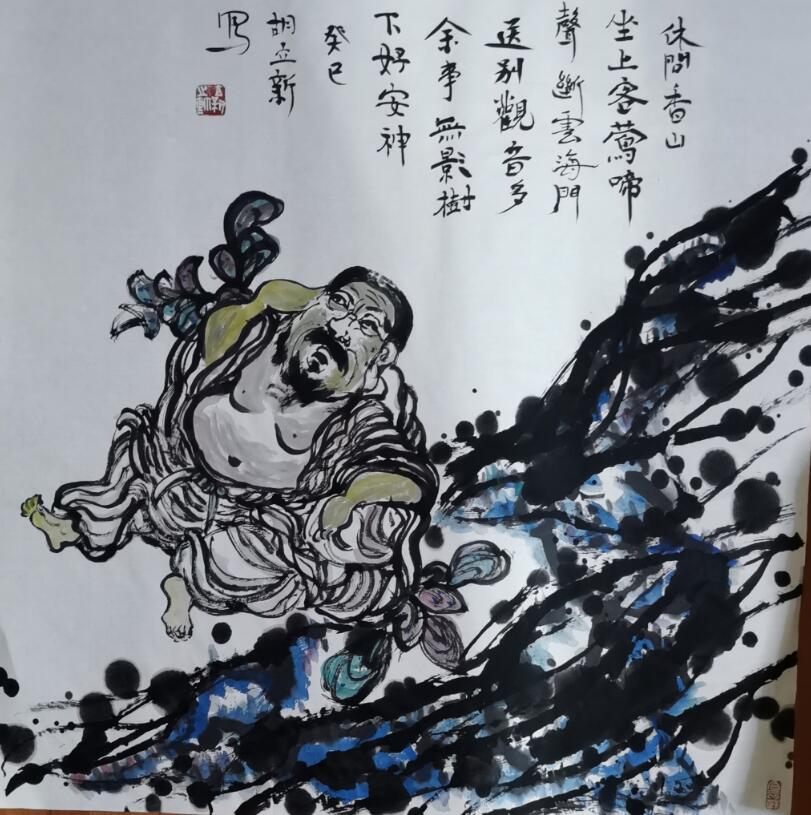 休問香山
坐上客鶯啼
聲斷雲海門
送別觀音多
余事無影樹
下好安神
癸巳
胡立新
寫